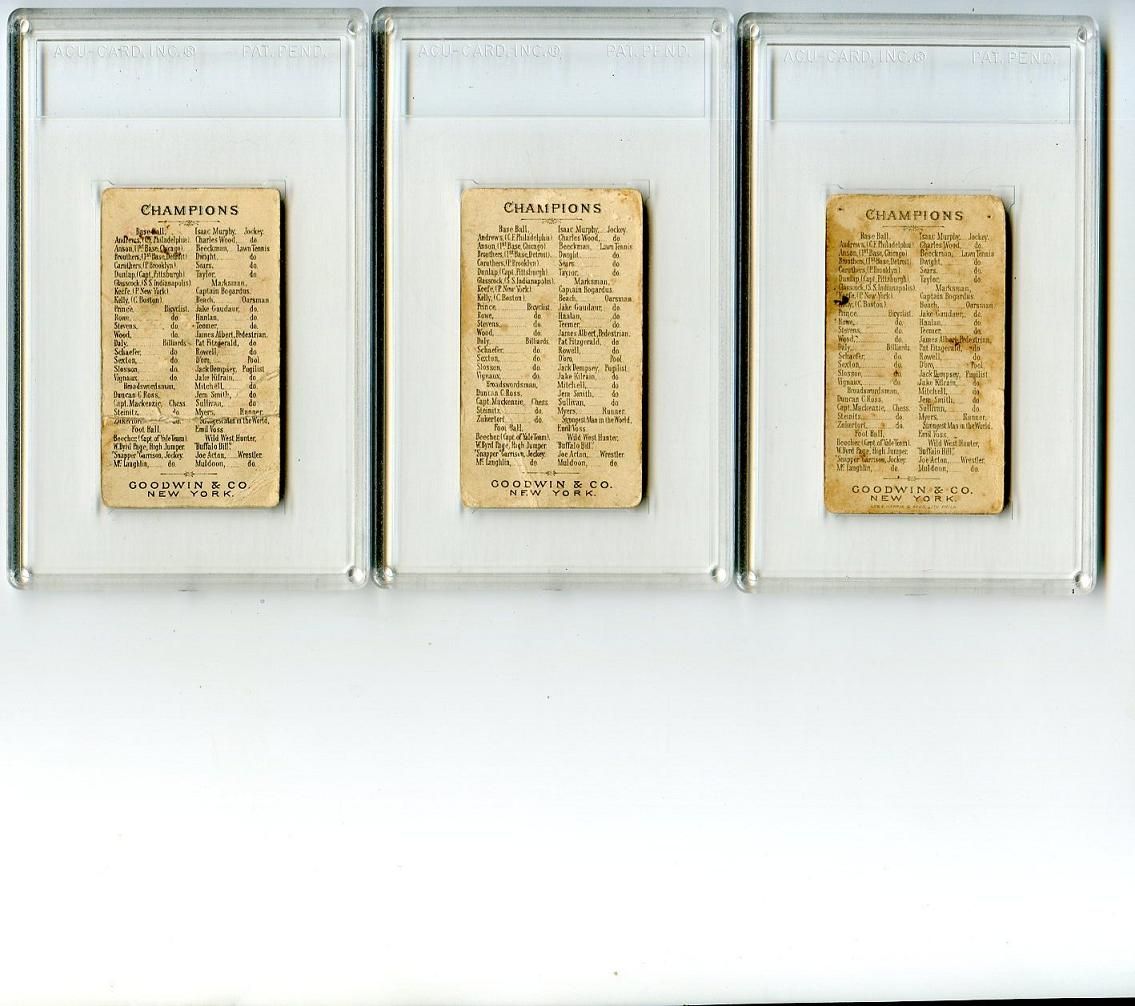 ACU-CARD, INC.® PAT. PEND.
CHAMPIONS
Base Ball, Isaac Murphy, Jockey.
Andrews, (C.F. Philadelphia) Charles Wood, do.
Anson, (1st Base, Chicago) Beeckman, Lawn Tennis
Brouthers, (1st Base, Detroit) Dwight, do.
Caruthers, (P. Brooklyn) Sears, do.
Dunlap, (Capt. Pittsburgh) Taylor, do.
Glasscock, (S.S. Indianapolis) Marksman,
Keefe, (P. New York) Captain Bogardus.
Kelly, (C. Boston) Beach, Oarsman
Prince, Bicyclist. Jake Gaudaur, do.
Rowe, do. Hanlan, do.
Stevens, do. Teemer, do.
Wood, do. James Albert, Pedestrian.
Daly, Billiards Pat Fitzgerald, do
Schaefer, do. Rowell, do
Sexton, do. D'oro, Pool.
Slosson, do. Jack Dempsey, Pugilist
Vignaux, do. Jake Kilrain, do
Broadswordsman, Mitchell, do
Duncan C. Ross, Jem Smith, do
Capt. Mackenzie, Chess Sullivan, do
Steinitz, do. Myers, Runner.
Zukertort, do. Strongest Man in the World,
Foot Ball, Emil Voss.
Beecher, (Capt. of Yale Team) Wild West Hunter,
W. Byrd Page, High Jumper. "Buffalo Bill."
"Snapper" Garrison, Jockey. Joe Acton, Wrestler.
Mc Laughlin, do. Muldoon, do.
GOODWIN & CO.
NEW YORK.
ACU-CARD, INC.® PAT. PEND.
CHAMPIONS
Base Ball, Isaac Murphy, Jockey.
Andrews, (C.F. Philadelphia) Charles Wood, do.
Anson, (1st Base, Chicago) Beeckman, Lawn Tennis
Brouthers, (1st Base, Detroit) Dwight, do.
Caruthers, (P. Brooklyn) Sears, do.
Dunlap, (Capt. Pittsburgh) Taylor, do.
Glasscock, (S.S. Indianapolis) Marksman,
Keefe, (P. New York) Captain Bogardus.
Kelly, (C. Boston) Beach, Oarsman
Prince, Bicyclist. Jake Gaudaur, do.
Rowe, do. Hanlan, do.
Stevens, do. Teemer, do.
Wood, do. James Albert, Pedestrian.
Daly, Billiards. Pat Fitzgerald, do
Schaefer, do. Rowell, do
Sexton, do. D'oro, Pool.
Slosson, do. Jack Dempsey, Pugilist
Vignaux, do. Jake Kilrain, do
Broadswordsman, Mitchell, do
Duncan C. Ross, Jem Smith, do
Capt. Mackenzie, Chess. Sullivan, do
Steinitz, do. Myers, Runner.
Zukertort, do. Strongest Man in the World,
Foot Ball, Emil Voss.
Beecher, (Capt. of Yale Team) Wild West Hunter,
W. Byrd Page, High Jumper. "Buffalo Bill."
"Snapper" Garrison, Jockey. Joe Acton, Wrestler.
Mc Laughlin, do. Muldoon, do.
GOODWIN & CO.
NEW YORK.
ACU-CARD, INC.® PAT. PEND.
CHAMPIONS
Base Ball, Isaac Murphy, Jockey.
Andrews, (C.F. Philadelphia) Charles Wood, do.
Anson, (1st Base, Chicago) Beeckman, Lawn Tennis
Brouthers, (1st Base, Detroit) Dwight, do.
Caruthers, (P. Brooklyn) Sears, do.
Dunlap, (Capt. Pittsburgh) Taylor, do.
Glasscock, (S.S. Indianapolis) Marksman,
Keefe, (P. New York) Captain Bogardus.
Kelly, (C. Boston) Beach, Oarsman
Prince, Bicyclist. Jake Gaudaur, do.
Rowe, do. Hanlan, do.
Stevens, do. Teemer, do.
Wood, do. James Albert, Pedestrian,
Daly, Billiards. Pat Fitzgerald, do
Schaefer, do. Rowell, do
Sexton, do. D'oro, Pool.
Slosson, do. Jack Dempsey, Pugilist
Vignaux, do. Jake Kilrain, do
Broadswordsman, Mitchell, do
Duncan C. Ross, Jem Smith, do
Capt. Mackenzie, Chess. Sullivan, do
Steinitz, do. Myers, Runner.
Zukertort, do. Strongest Man in the World.
Foot Ball, Emil Voss.
Beecher, (Capt. of Yale Team) Wild West Hunter,
W. Byrd Page, High Jumper. "Buffalo Bill."
"Snapper" Garrison, Jockey. Joe Acton, Wrestler.
Mc Laughlin, do. Muldoon, do.
GOODWIN & CO.
NEW YORK.